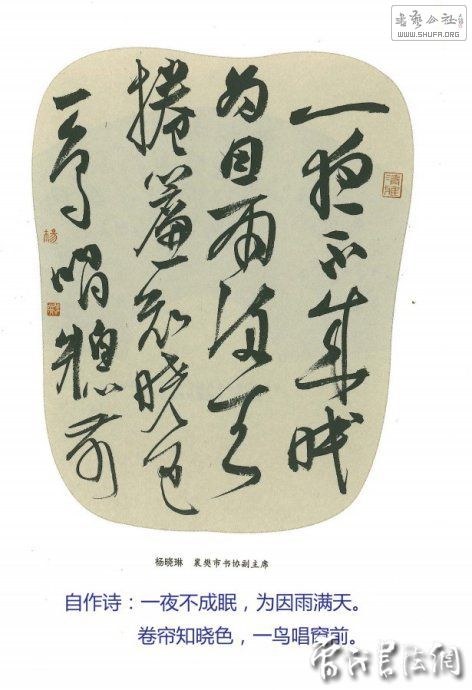 书艺公社
WWW.SHUFA.ORG
一夜不成眠
为因雨满天
捲簾知晓色
一鸟唱窗前
杨晓琳 襄樊市书协副主席
自作诗：一夜不成眠，为因雨满天。
卷帘知晓色，一鸟唱窗前。